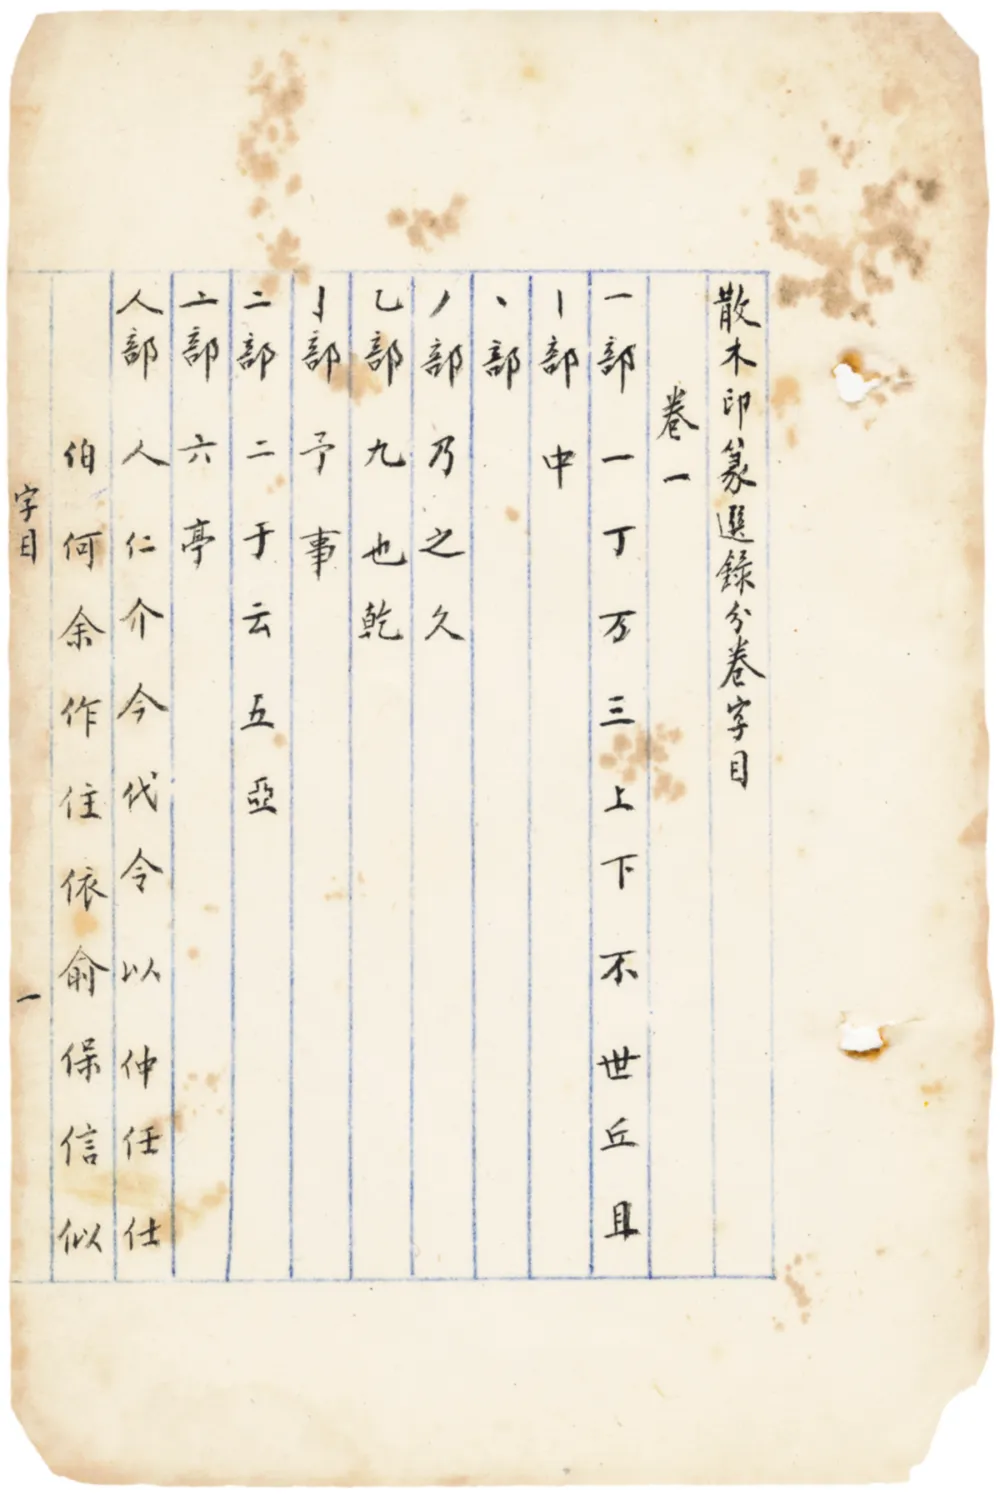 散木印篆選錄分卷字目
卷一
一部 一 丁 丂 三 上 下 不 世 丘 且
丨部 中
丶部
丿部 乃 之 久
乙部 九 也 乾
亅部 予 事
二部 二 于 云 五 亞
亠部 六 亭
人部 人 仁 介 今 代 令 以 仲 任 仕
伯 何 余 作 住 依 俞 保 信 似
字目 一